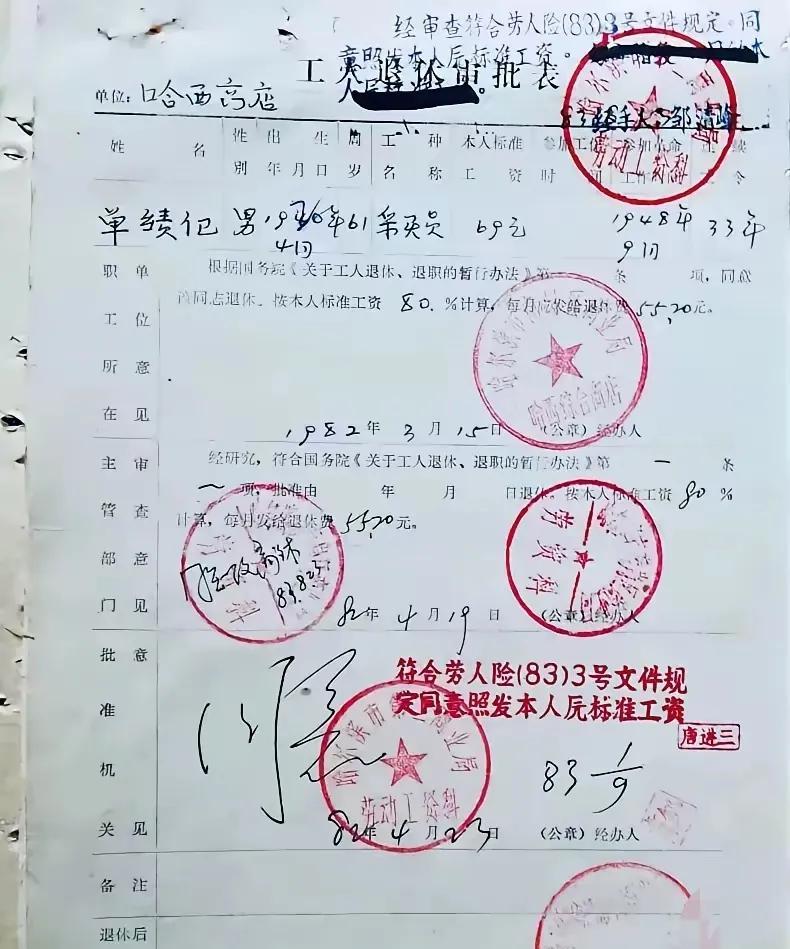 经审查符合劳人险(83)3号文件规定。同
意照发本人原标准工资。
工人退休审批表
单位：哈西商店
经手人：邹清峰
姓名 性别 出生年月日 周岁 工种名称 本人标准工资 参加工作时间 参加革命工作时间 连续工令
单绩纪 男 1920年4月 61 采买员 69元 1948年9月 33年
职工所在单位意见
根据国务院《关于工人退休、退职的暂行办法》第 条 项，同意
该同志退休。按本人标准工资 80.％计算，每月应发给退休费55.20元。
哈西综合商店
1982年3月15日 （公章）经办人
主管部门审查意见
经研究，符合国务院《关于工人退休、退职的暂行办法》第 一 条
一 项，批准由 年 月 日退休。按本人标准工资80％
计算，每月发给退休费55.20元。
劳资科
82年4月19日 （公章）经办人
批准机关意见
符合劳人险(83)3号文件规
定同意照发本人原标准工资
唐进三
83 1/9
劳动工资科
82年4月23日 （公章）经办人
备注
退休后